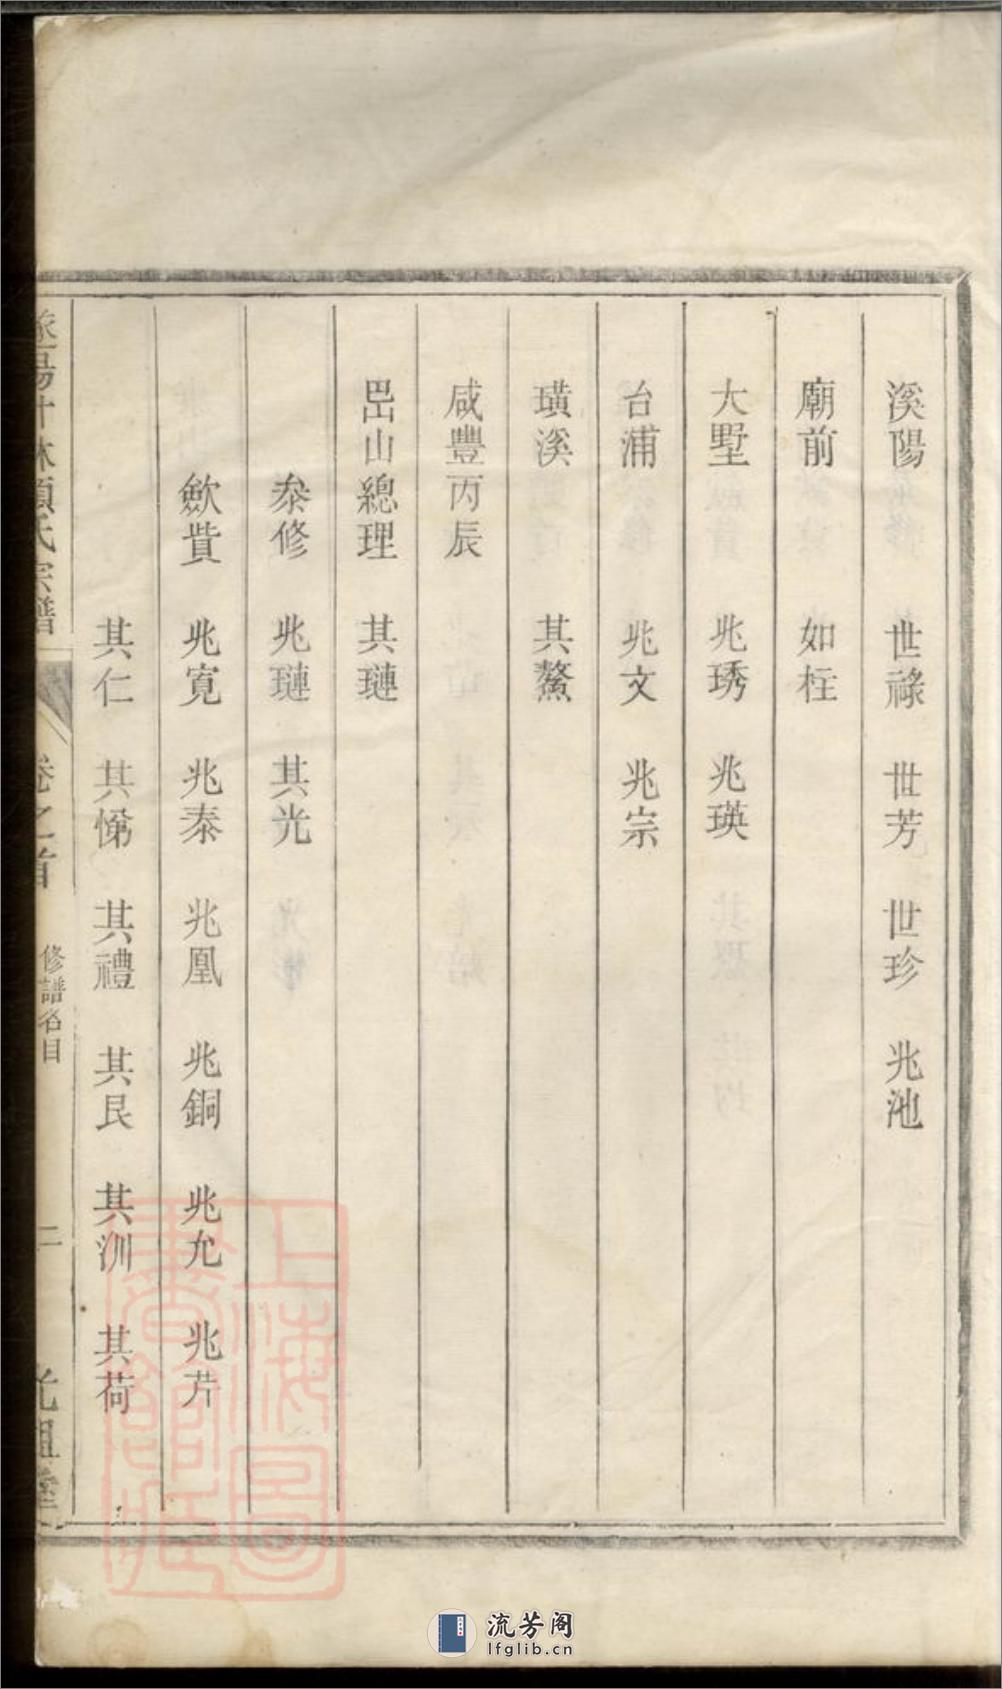 溪陽 世祿 世芳 世珍 兆池
廟前 如柱
大墅 兆琇 兆瑛
台浦 兆文 兆宗
璜溪 其鰲
咸豐丙辰
岊山總理 其璉
叅修 兆璉 其光
斂貲 兆寬 兆泰 兆凰 兆銅 兆允 兆芹
其仁 其悌 其禮 其艮 其洲 其荷
項氏宗譜 卷之首 修譜名目 二 光祖堂
上海圖書館藏
流芳阁
lfglib.cn